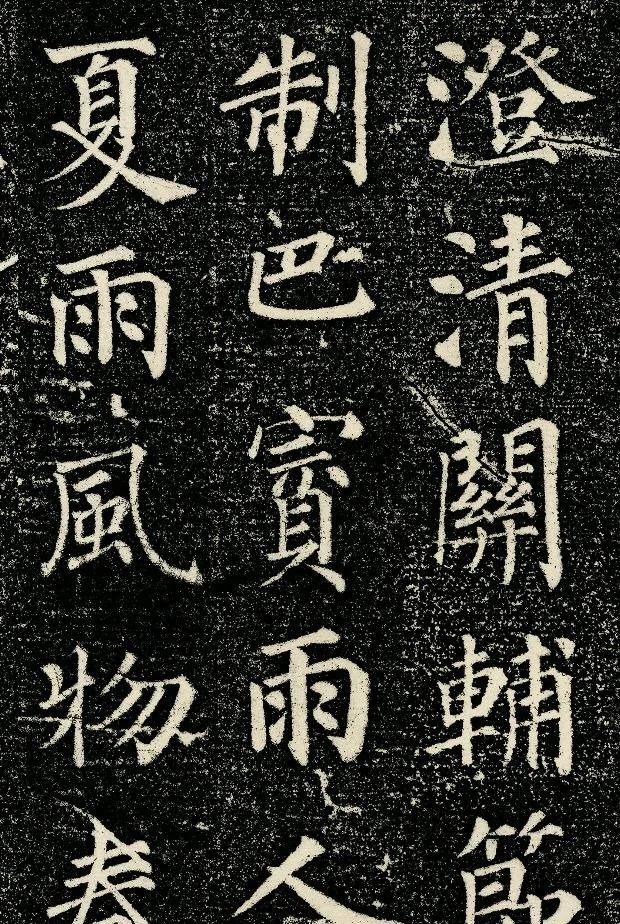 澄清關輔節
制巴賓雨
夏雨風物